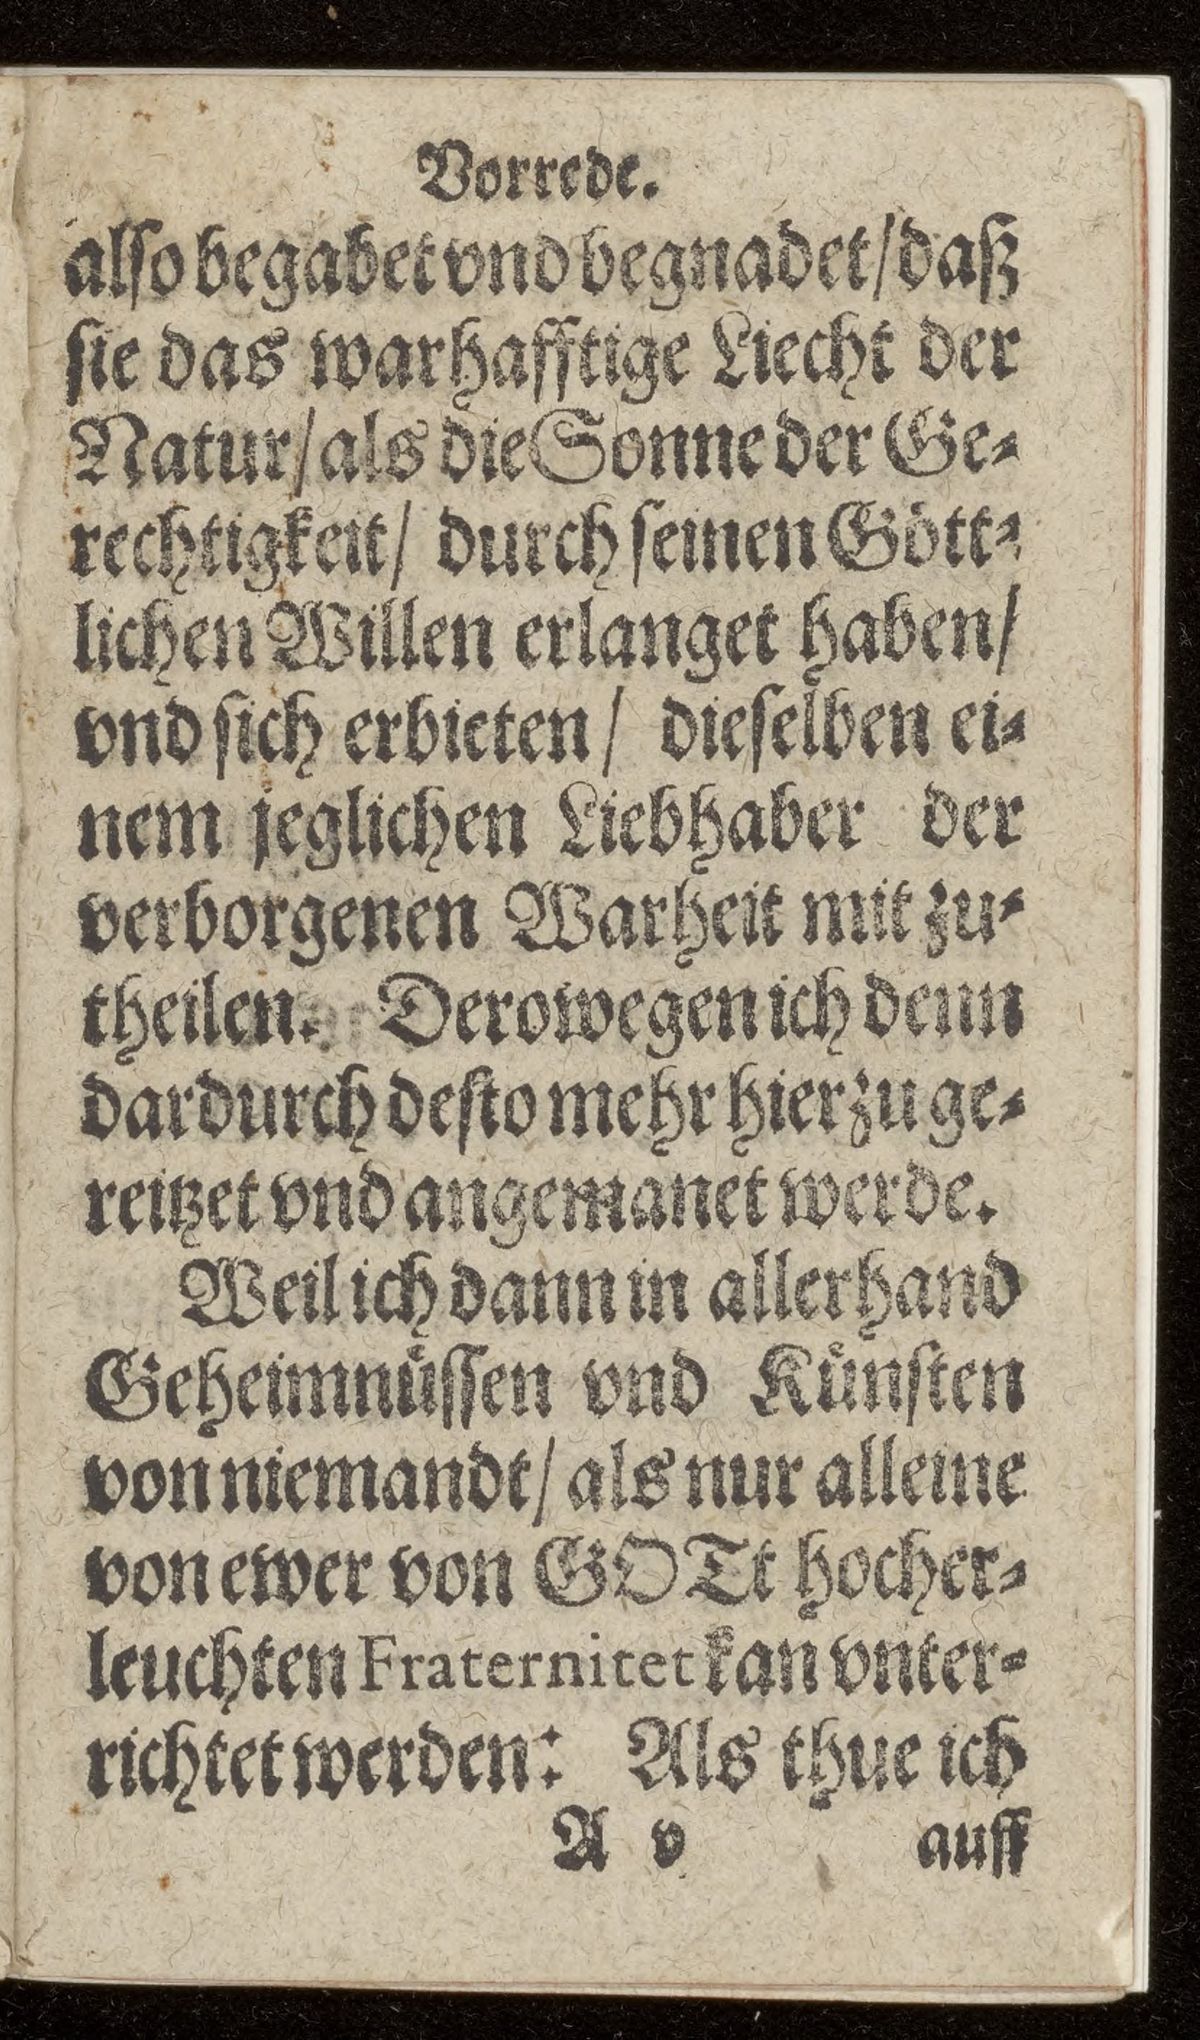 Vorrede.
also begabet vnd begnadet/daß
sie das warhafftige Liecht der
Natur/als die Sonne der Ge-
rechtigkeit/ durch seinen Gött-
lichen Willen erlanget haben/
vnd sich erbieten/ dieselben ei-
nem jeglichen Liebhaber der
verborgenen Warheit mit zu-
theilen. Derowegen ich denn
dardurch desto mehr hierzu ge-
reitzet vnd angemanet werde.
Weil ich dann in allerhand
Geheimnüssen vnd Künsten
von niemandt/als nur alleine
von ewer von GOTt hocher-
leuchten Fraternitet kan vnter-
richtet werden: Als thue ich
A v auff